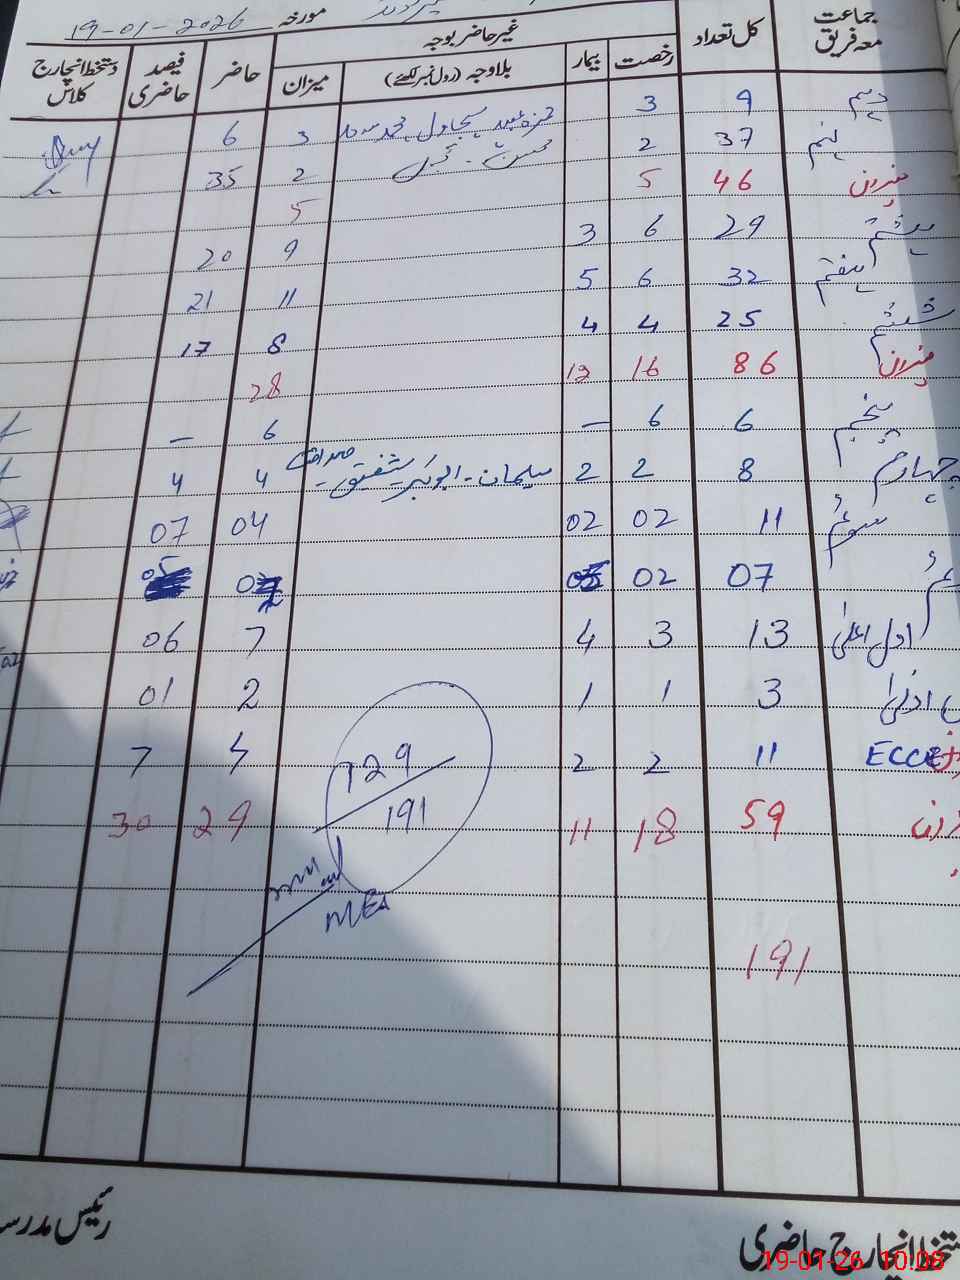 مورخہ 19-01-2026
جماعت معہ فریق کل تعداد غیر حاضر بوجہ حاضر فیصد حاضری دستخط انچارج کلاس
رخصت بیمار بلاوجہ (رول نمبر لکھئے) میزان
دہم 9 3 3 6
نہم 37 2 2 35
میزان 46 5 5
ہشتم 29 6 3 9 20
ہفتم 32 6 5 11 21
ششم 25 4 4 8 17
میزان 86 16 12 28
پنجم 6 6 — 6 —
چہارم 8 2 2 سلیمان - ابوبکر شفیق صداقت 4 4
سوئم 11 02 02 04 07
07 02 05
ادل اعلیٰ 13 3 4 7 06
ادنیٰ 3 1 1 2 01
ECCE 11 2 2 4 7
59 18 11 29 30
129
191
MEA
191
رئیس مدرسہ
دستخط انچارج حاضری
19-01-26 10:06